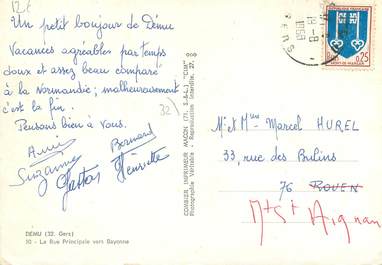 12€
Un petit bonjour de Dému
Vacances agréables par temps
doux et assez beau comparé
à la Normandie; malheureusement
c'est la fin.
Pensons bien à vous.
Annie
Bernard
Suzanne
Gaston
Henriette
32)
DÉMU (32. Gers)
10 - La Rue Principale vers Bayonne
COMBIER IMPRIMEUR MACON (71. S.-&-L.) "CIM"
Photographie Véritable - Reproduction Interdite.
REPUBLIQUE FRANÇAISE
0,25
MONT-DE-MARSAN
18-8
GERS
M. et Mme Marcel HUREL
33, rue des Bulins
76 ROUEN
Mt St Aignan